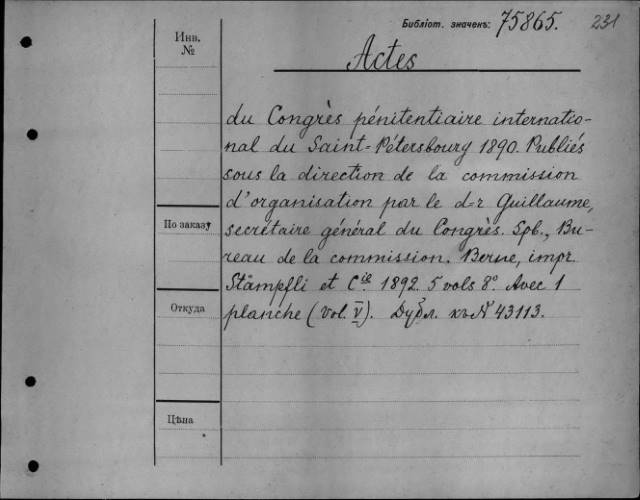 Библіот. значекъ: 75865. 231
Инв. №
Actes
du Congrès pénitentiaire internatio-
nal du Saint-Pétersbourg 1890. Publiés
sous la direction de la commission
d'organisation par le d-r Guillaume,
По заказу
secrétaire général du Congrès. Spb., Bu-
reau de la commission. Berne, impr.
Stämpfli et Cie 1892. 5 vols 8°. Avec 1
Откуда
planche (vol. V). Дубл. къ № 43113.
Цѣна